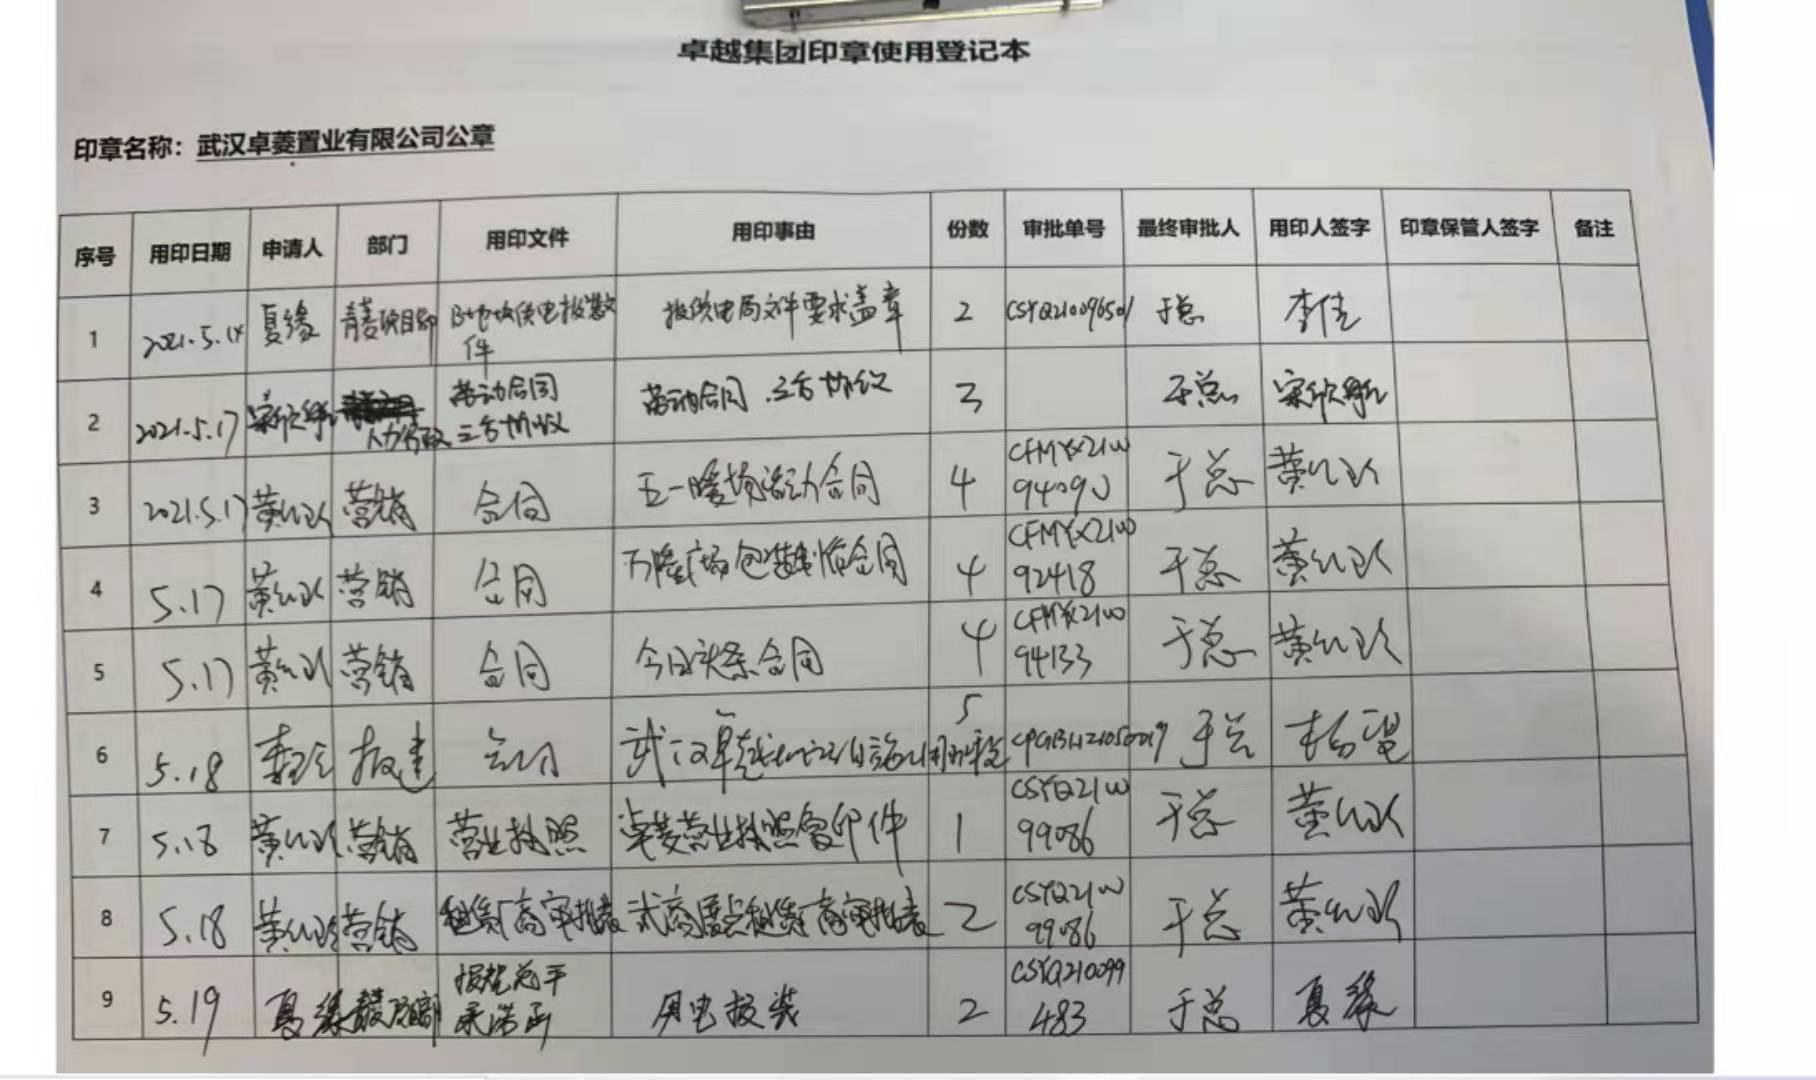 卓越集团印章使用登记本
印章名称：武汉卓菱置业有限公司公章
序号 用印日期 申请人 部门 用印文件 用印事由 份数 审批单号 最终审批人 用印人签字 印章保管人签字 备注
1 2021.5.14 夏缘 青菱项目部 B地块供电报装文件 报供电局文件要求盖章 2 CSYQ210096501 于总 李佳
2 2021.5.17 人力行政 劳动合同 三方协议 劳动合同 三方协议 3 于总
3 2021.5.17 黄 营销 合同 五一暖场活动合同 4 CFMYX2100 94090 于总 黄
4 5.17 黄 营销 合同 广场包装制作合同 4 CFMYX2100 92418 于总 黄
5 5.17 黄 营销 合同 今日头条合同 4 CFMYX2100 94133 于总 黄
6 5.18 报建 合同 武汉卓越 5 于总
7 5.18 黄 营销 营业执照 卓菱营业执照复印件 1 CSYQ2100 99086 于总 黄
8 5.18 黄 营销 租赁厂商审批表 武商 租赁厂商审批表 2 CSYQ2100 99086 于总 黄
9 5.19 夏缘 项目部 报装总平 用电报装 2 CSYQ210099 483 于总 夏缘